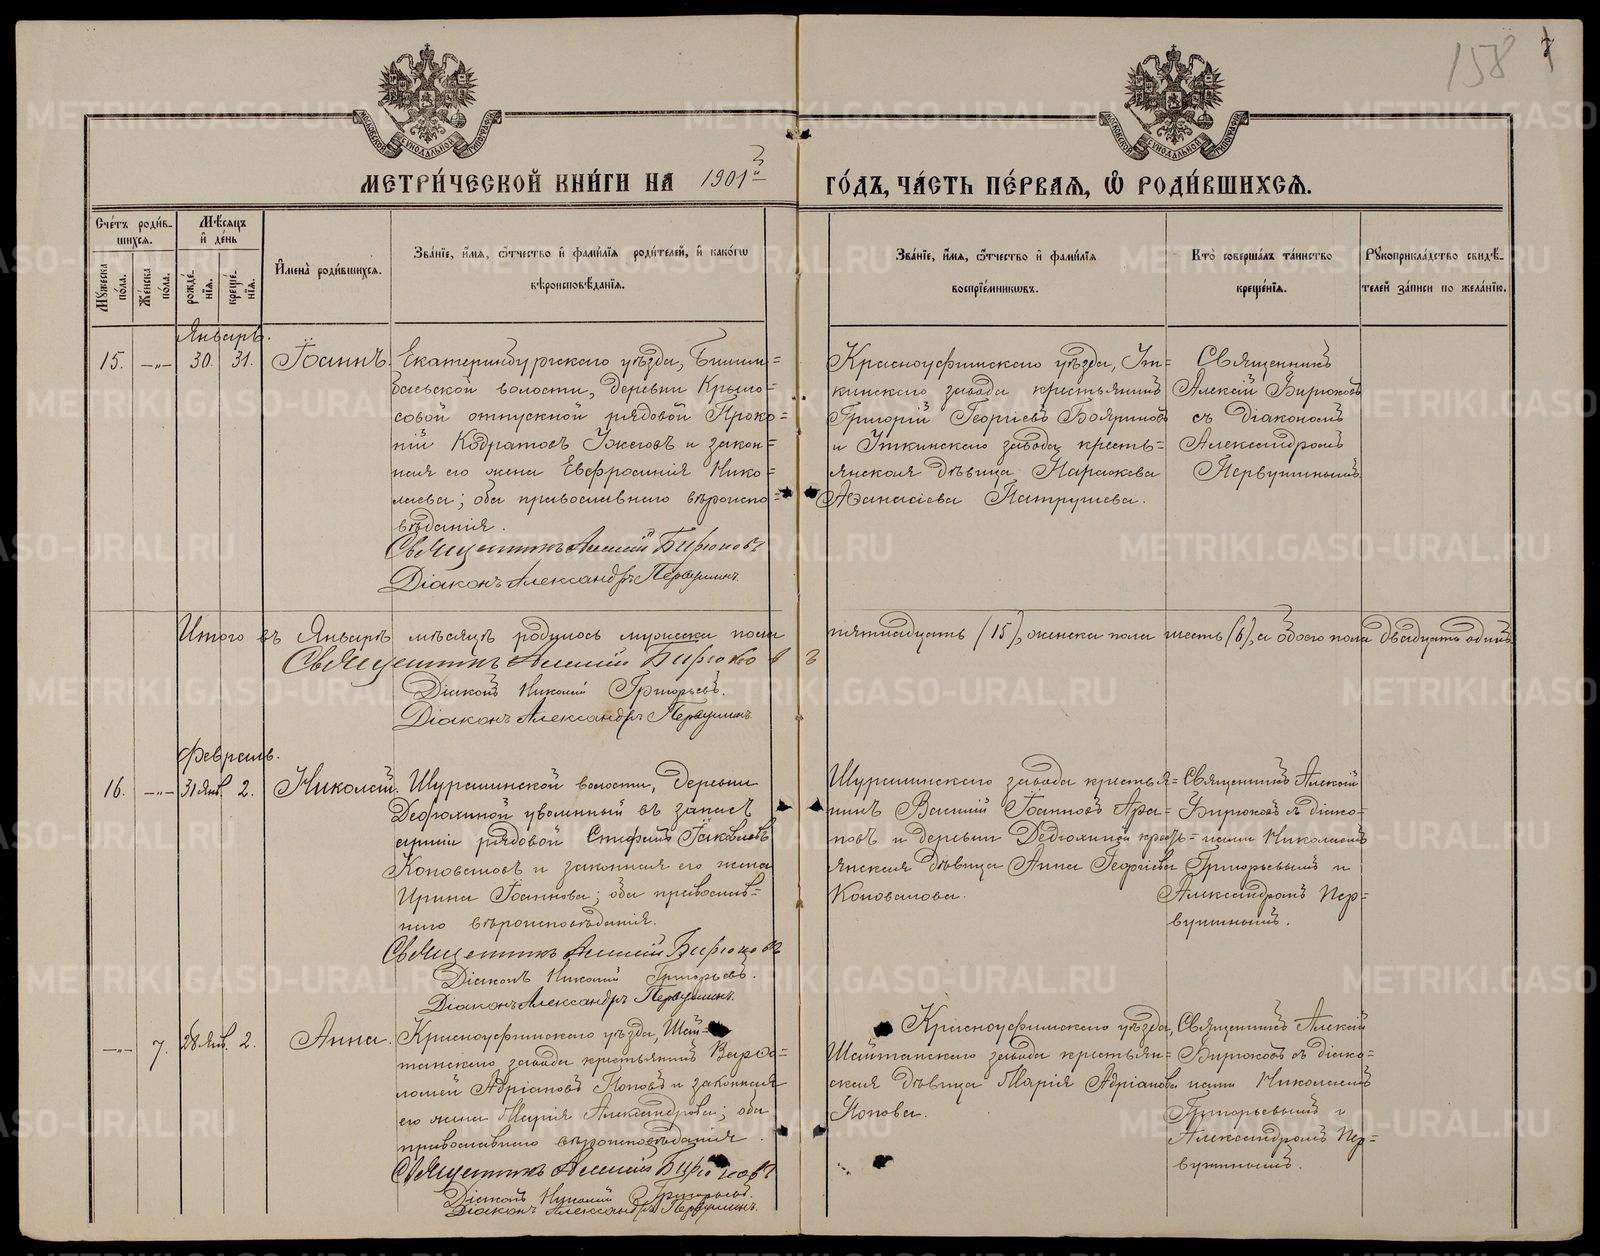 158
7
МЕТРИ́ЧЕСКОЙ КНИ́ГИ НА 1901й ГО́ДЪ, ЧА́СТЬ ПЕ́РВАѦ, Ѡ҆ РОДИ́ВШИХСѦ.
Сче́тъ роди́в-
шихся.
Мѣ́сяцъ
и҆ де́нь
Мꙋ́жеска по́ла.
Же́нска по́ла.
рожде́-
нїѧ.
креще́-
нїѧ.
И҆мена̀ роди́вшихсѧ.
Зва́нїе, и҆́мѧ, ѻ҆́тчество и҆ фами́лїѧ роди́телей, и҆ како́гѡ
вѣроисповѣ́данїѧ.
Зва́нїе, и҆́мѧ, ѻ҆́тчество и҆ фами́лїѧ
воспрїе́мникѡвъ.
Кто̀ соверша́лъ та́инство
креще́нїѧ.
Рꙋкоприкла́дство свидѣ́-
телей за́писи по жела́нїю.
Январь.
15. —„— 30. 31. Іоаннъ.
Екатеринбургскаго уѣзда, Билим=
баевской волости, деревни Крыло=
совой отпускной рядовой Проко=
пій Кодратовъ Ужеговъ и закон=
ная его жена Евфросинія Нико=
лаева; оба православнаго вѣроиспо=
вѣданія.
Священникъ Алексій Бирюковъ
Діаконъ Александръ Первушинъ.
Красноуфимскаго уѣзда, Ут=
кинскаго завода крестьянинъ
Григорій Георгіевъ Бояриновъ
и Уткинскаго завода кресть=
янская дѣвица Параскева
Аѳанасіева Патрушева.
Священникъ
Алексій Бирюковъ
съ діакономъ
Александромъ
Первушинымъ.
Итого въ Январѣ мѣсяцѣ родилось мужеска пола пятнадцать (15), женска пола шесть (6), а обоего пола двадцать одинъ.
Священникъ Алексій Бирюковъ
Діаконъ Николай Григорьевъ.
Діаконъ Александръ Первушинъ.
Февраль.
16. —„— 31 Янв. 2. Николай.
Шуралинской волости, деревни
Дедюхиной уволенный въ запасъ
арміи рядовой Стефанъ Іаковлевъ
Коноваловъ и законная его жена
Ирина Іоаннова; оба православ=
наго вѣроисповѣданія.
Священникъ Алексій Бирюковъ
Діаконъ Николай Григорьевъ.
Діаконъ Александръ Первушинъ.
завода крестья=
нинъ Василій Іоанновъ Ара=
повъ и деревни Дедюхиной кресть=
янская дѣвица Анна Георгіева
Коновалова.
Священникъ Алексій
Бирюковъ съ діако=
нами Николаемъ
Григорьевымъ и
Александромъ Пер=
вушинымъ.
—„— 7. 28 Янв. 2. Анна.
Красноуфимскаго уѣзда, Шай=
танскаго завода крестьянинъ Варѳо=
ломей Адріановъ Поповъ и законная
его жена Марія Александрова; оба
православнаго вѣроисповѣданія.
Священникъ Алексій Бирюковъ
Діаконъ Николай Григорьевъ.
Діаконъ Александръ Первушинъ.
Красноуфимскаго уѣзда,
Шайтанскаго завода крестьян=
ская дѣвица Марія Адріанова
Попова.
Священникъ Алексій
Бирюковъ съ діако=
нами Николаемъ
Григорьевымъ и
Александромъ Пер=
вушинымъ.
METRIKI.GASO-URAL.RU